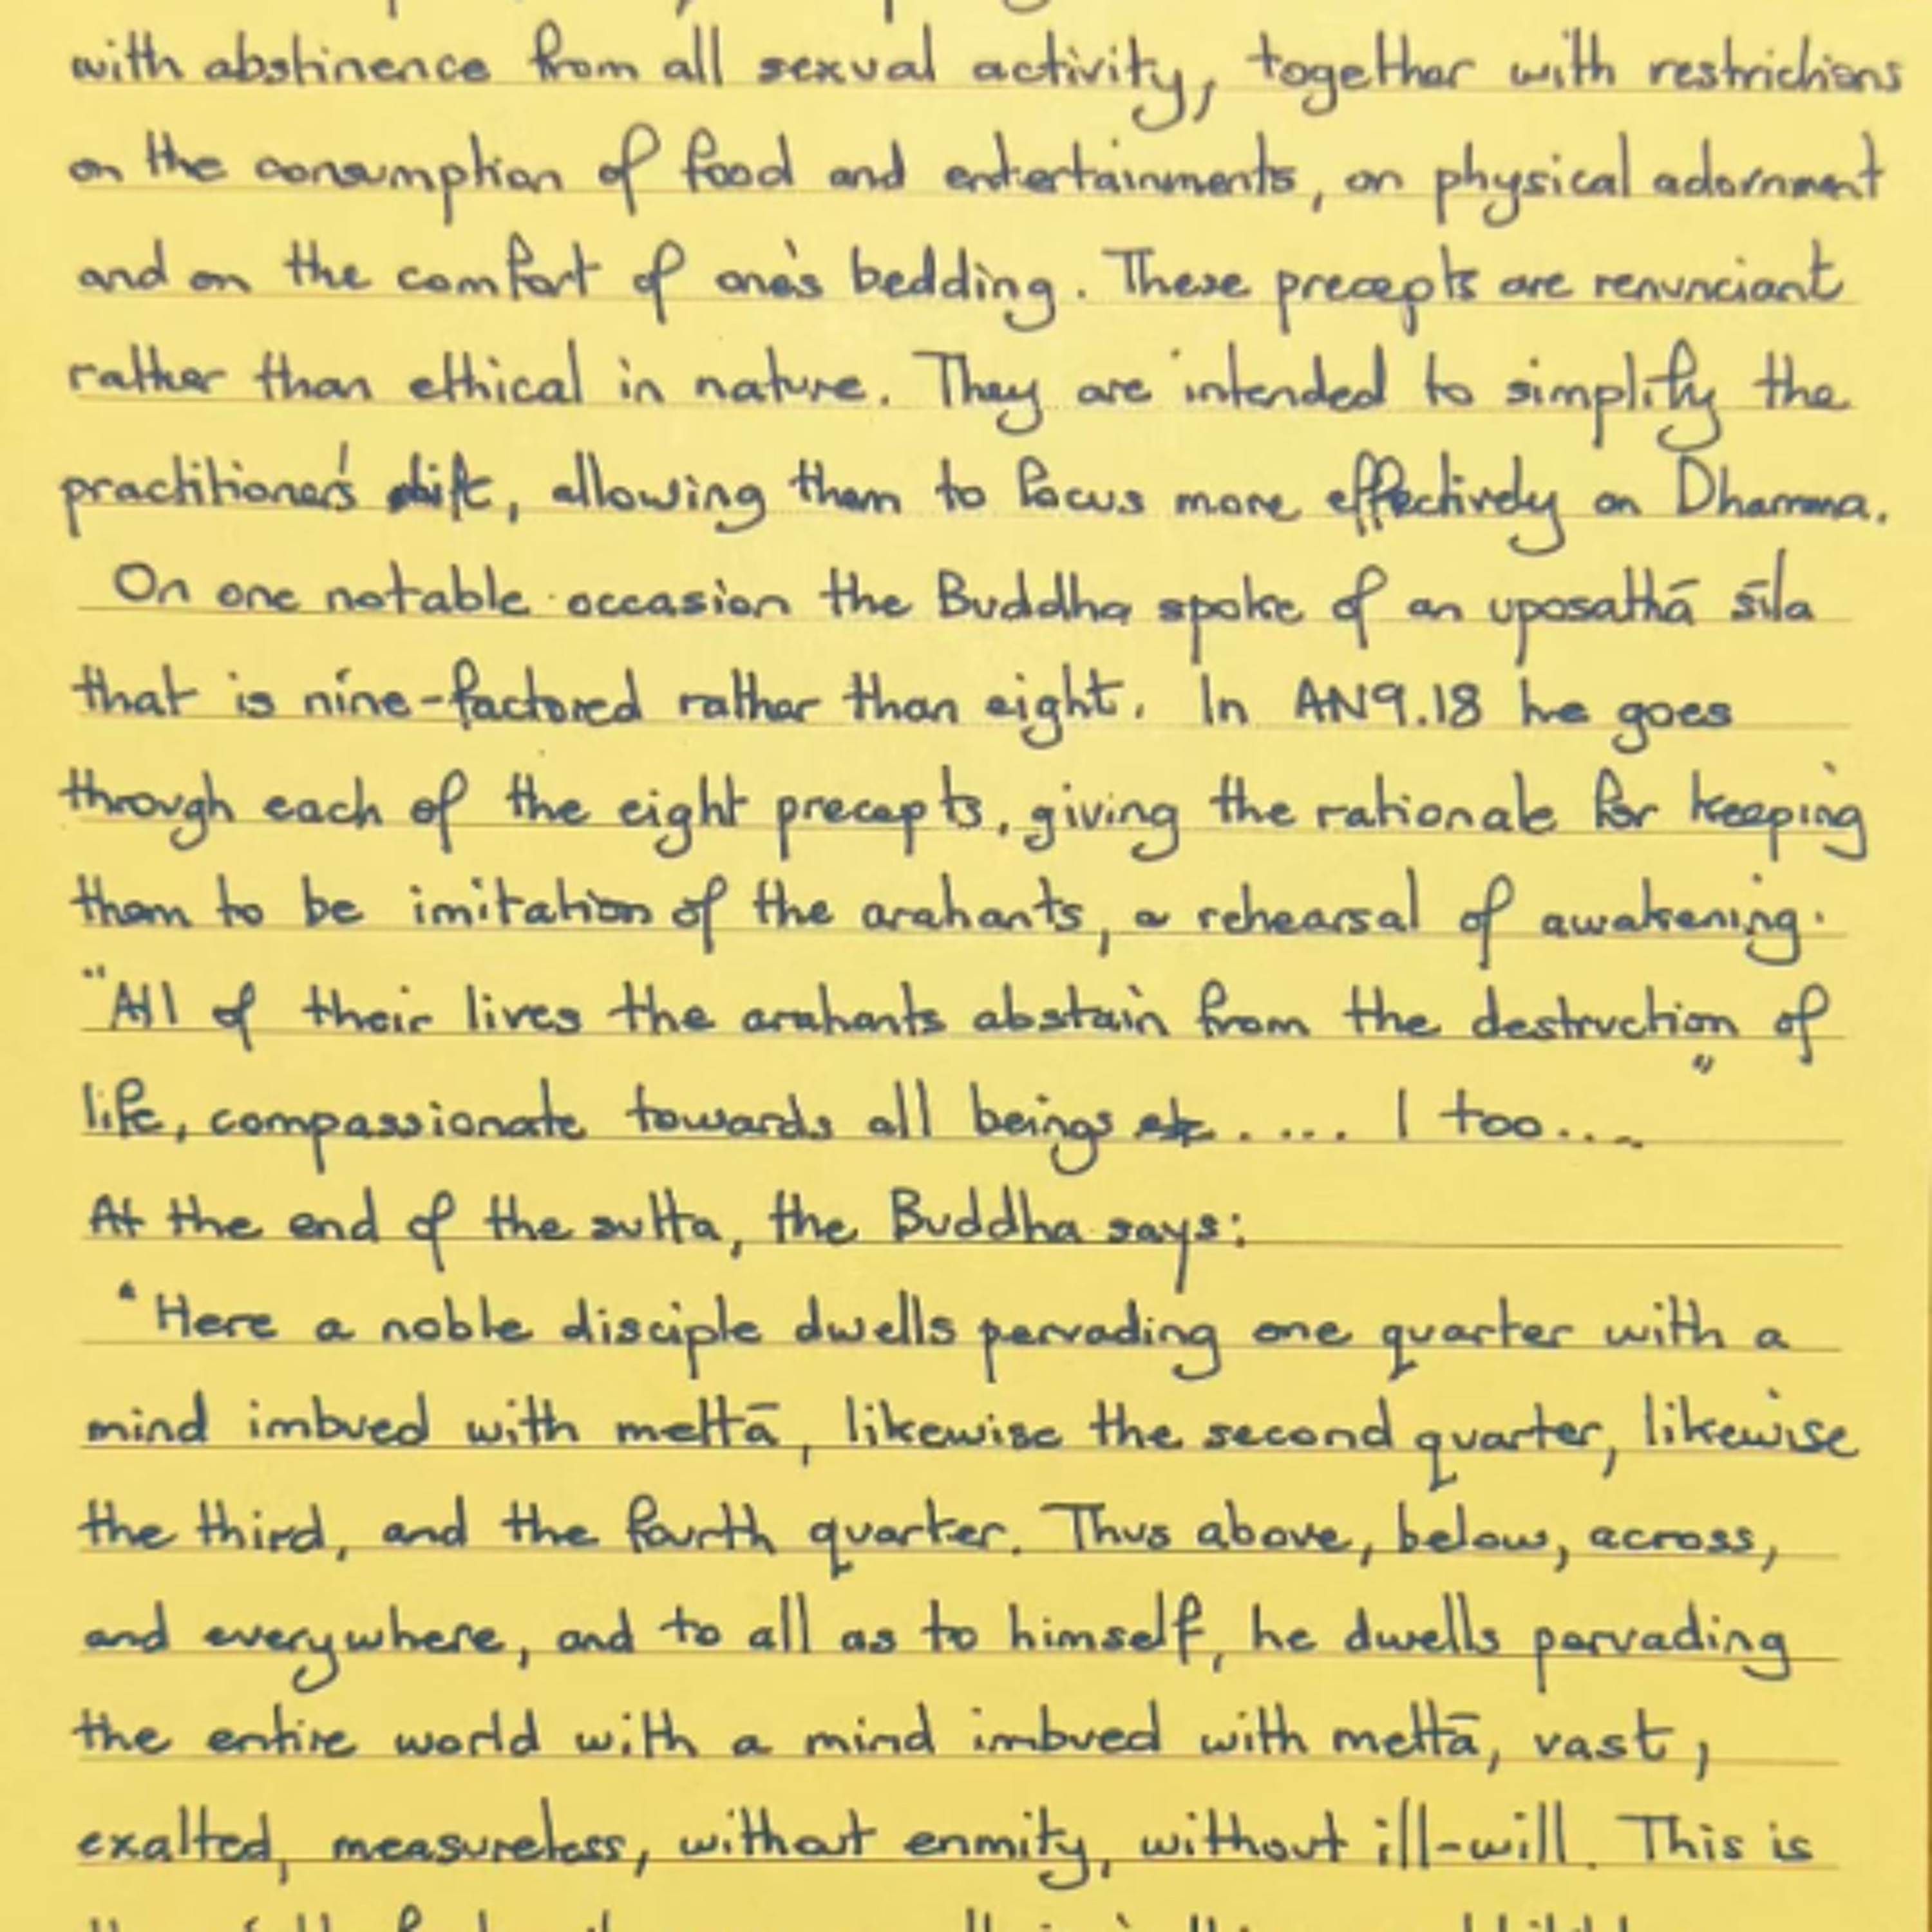 with abstinence from all sexual activity, together with restrictions
on the consumption of food and entertainments, on physical adornment
and on the comfort of one's bedding. These precepts are renunciant
rather than ethical in nature. They are intended to simplify the
practitioner's , allowing them to focus more effectively on Dhamma.
On one notable occasion the Buddha spoke of an uposathā sīla
that is nine-factored rather than eight. In AN9.18 he goes
through each of the eight precepts, giving the rationale for keeping
them to be imitation of the arahants, a rehearsal of awakening.
"All of their lives the arahants abstain from the destruction of
life, compassionate towards all beings etc..... I too...."
At the end of the sutta, the Buddha says:
"Here a noble disciple dwells pervading one quarter with a
mind imbued with mettā, likewise the second quarter, likewise
the third, and the fourth quarter. Thus above, below, across,
and everywhere, and to all as to himself, he dwells pervading
the entire world with a mind imbued with mettā, vast,
exalted, measureless, without enmity, without ill-will. This is